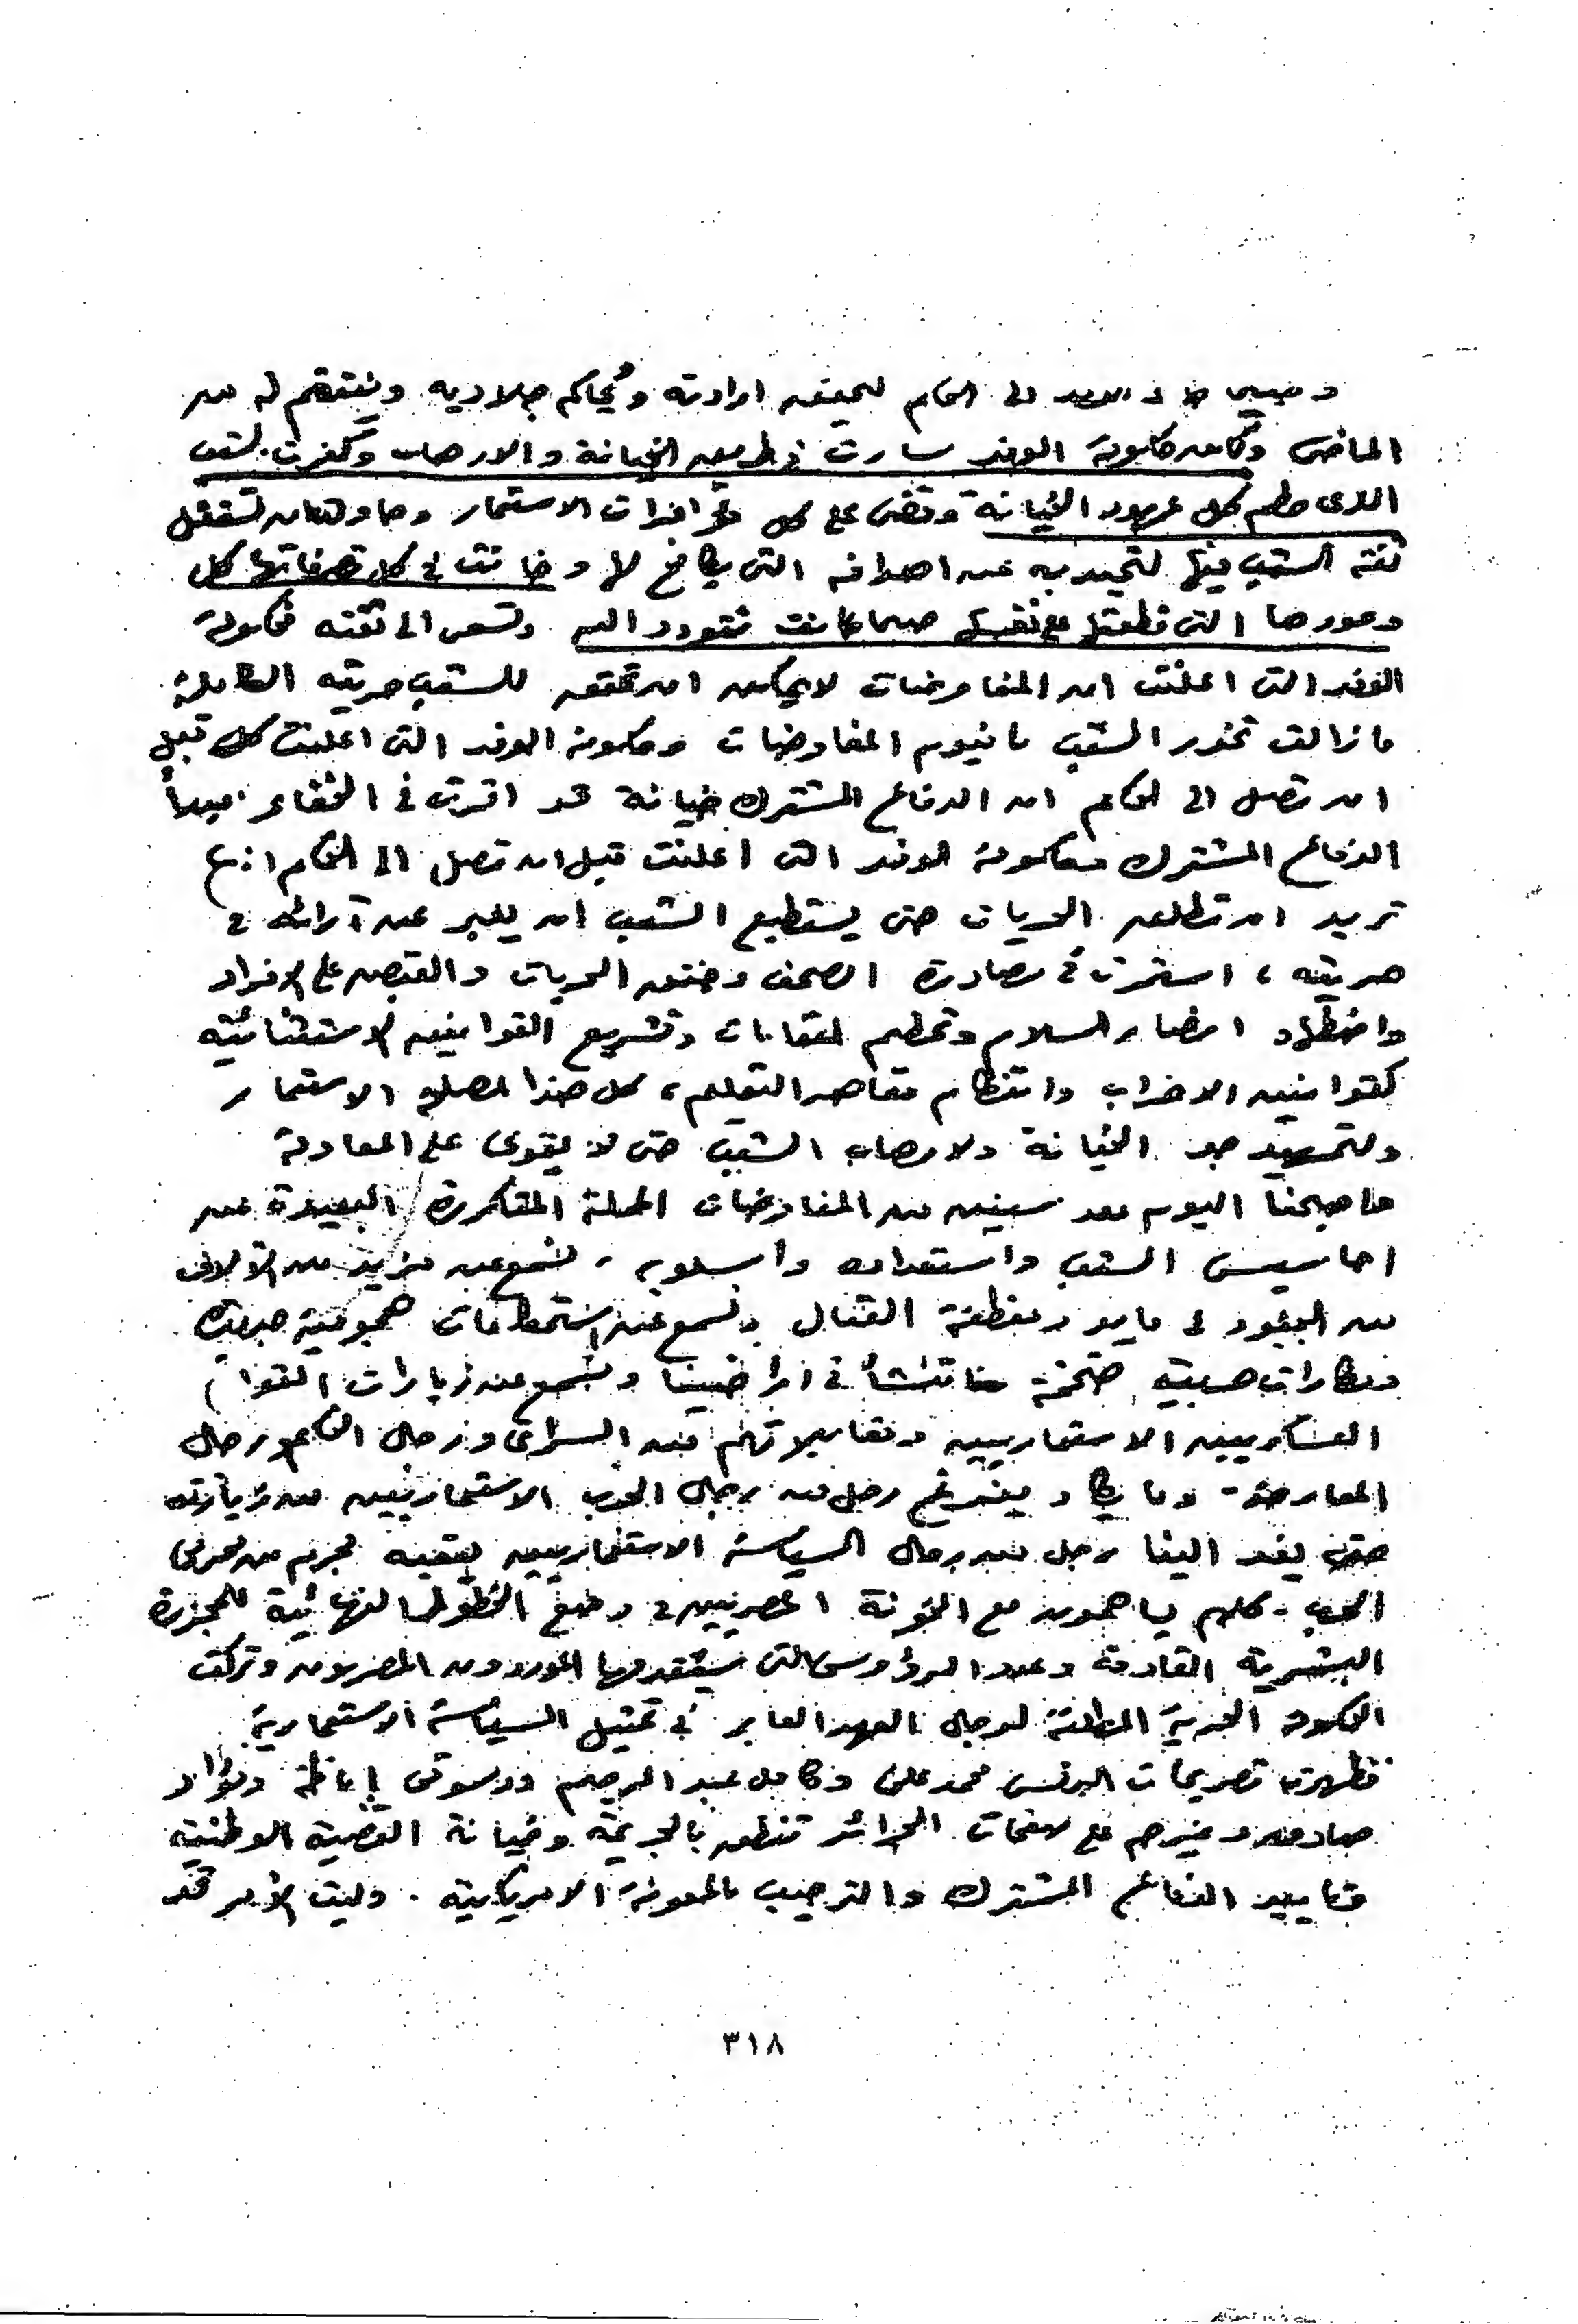 الى الحكم ليحقق ارادته ويحاكم جلاديه وينتقم له من
الماضى ولكن حكومة الوفد سارت فى طريق الخيانة والارهاب وكفرت بالشعب
الذى حطم كل عهود الخيانة وقضى على كل مؤامرات الاستعمار وحاولت ان تستغل
ثقة الشعب فيها لتحيد به عن اهدافه التى يكافح لها وخانت فى كل تصرفاتها كل
وعودها التى قطعتها على نفسها حينما كانت تتودد اليه وتسعى الى ثقته فحكومة
الوفد التى اعلنت ان المفاوضات لا يمكن ان تحقق للشعب حريته الكاملة
ما زالت تخدر الشعب بافيون المفاوضات وحكومة الوفد التى اعلنت كل قبل
ان تصل الى الحكم ان الدفاع المشترك خيانة قد اقرت فى الخفاء مبدأ
الدفاع المشترك وحكومة الوفد التى اعلنت قبل ان تصل الى الحكم انها
تريد ان تطلق الحريات حتى يستطيع الشعب ان يعبر عن آرائه فى
حريته ، استمرت فى مصادرة الصحف وخنق الحريات والقبض على الافراد
واضطهاد انصار السلام وتحطيم النقابات وتشريع القوانين الاستثنائية
كقوانين الاحزاب وانتظام معاهد التعليم ، كل هذا لمصلحة الاستعمار
ولتمهيد جو الخيانة ولارهاب الشعب حتى لا يقوى على المعارضة
واصبحنا اليوم بعد سنين من المفاوضات المملة المتكررة البعيدة عن
احاسيس الشعب واستعداده وأسلوبه ، نسمع عن مزيد من الآلاف
من الجنود فى فايد ومنطقة القنال ونسمع عن استحكامات هجومية جديدة
ومطارات حربية ضخمة تنشأ فى اراضينا ونسمع عن زيارات القواد
العسكريين الاستعماريين ومقابلاتهم مع السراى ورجال الحكم ورجال
المعارضة - وما يكاد ينتهى رجل من رجال الحرب الاستعماريين من زيارته
حتى يفد الينا رجل من رجال السياسة الاستعماريين يتبعه مجرم من مجرمى
الحرب - كلهم يساهمون مع الخونة المصريين فى وضع الخطوط النهائية للمجزرة
البشرية القادمة وعدد الرؤوس التى سيقدمها الموردون المصريون وتركت
الحكومة الحرية المطلقة لرجال العهد الغابر فى تمثيل السياسة الاستعمارية
فظهرت تصريحات البرنس محمد على وكامل عبد الرحيم ودسوقى إباظة وفؤاد
صادق وغيرهم على صفحات الجرائد تنطق بالجريمة وخيانة القضية الوطنية
وتأييد الدفاع المشترك والترحيب بالمعونة الامريكية . وليت الأمر قد
٣١٨